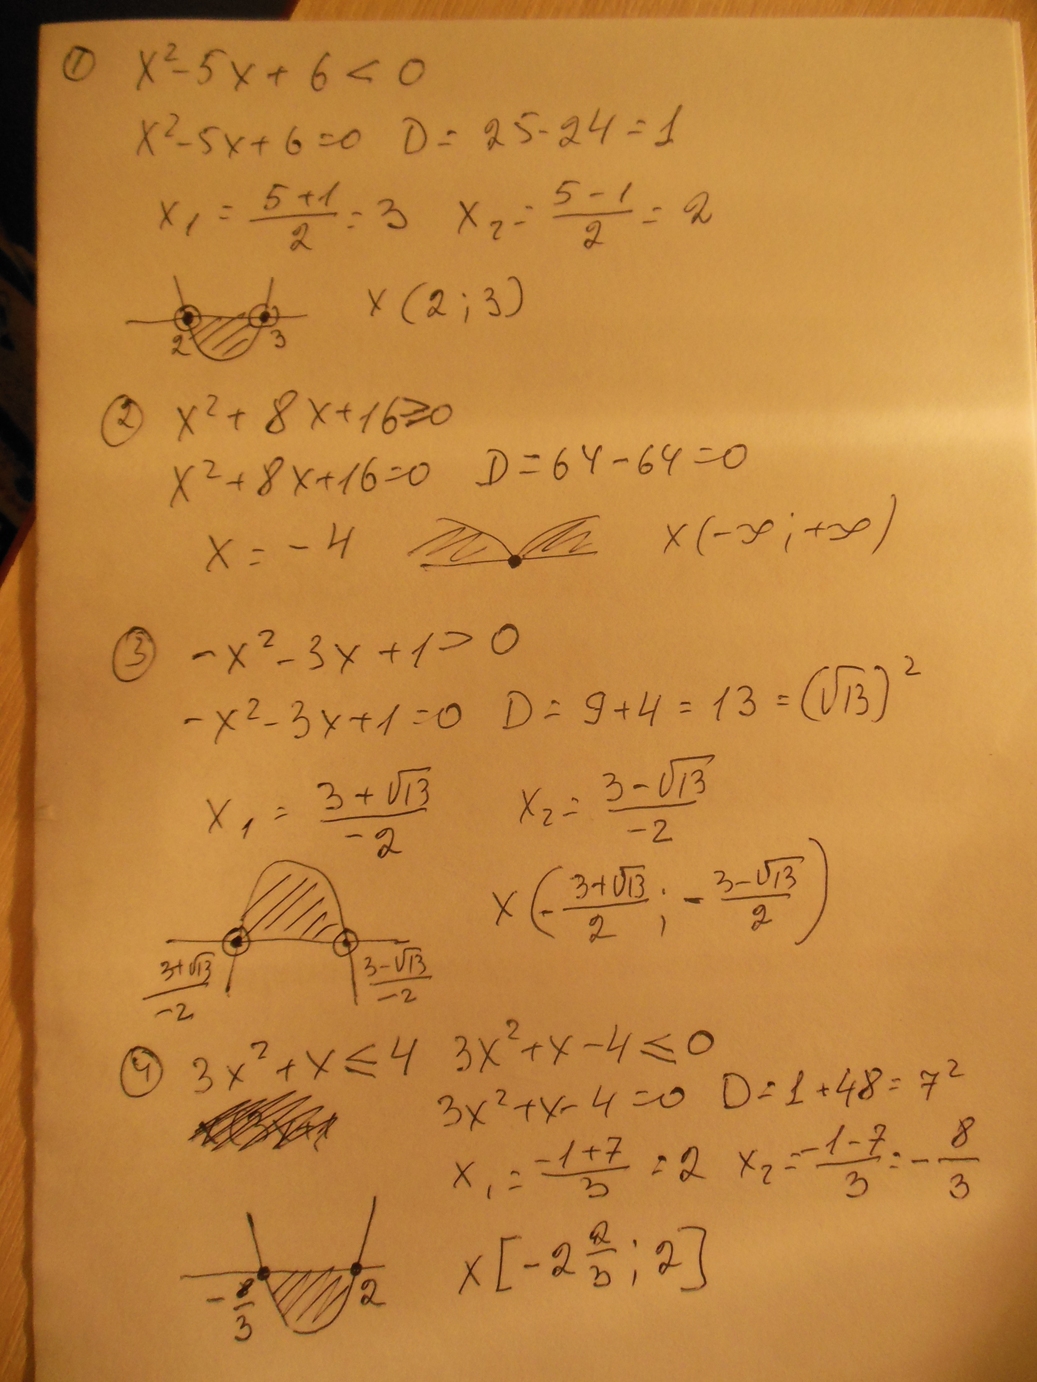 ① x² - 5x + 6 < 0
x² - 5x + 6 = 0 D = 25 - 24 = 1
x₁ = (5 + 1)/2 = 3 x₂ = (5 - 1)/2 = 2
2 3 x (2 ; 3)
② x² + 8x + 16 ≥ 0
x² + 8x + 16 = 0 D = 64 - 64 = 0
x = -4 x (-∞ ; +∞)
③ -x² - 3x + 1 > 0
-x² - 3x + 1 = 0 D = 9 + 4 = 13 = (√13)²
x₁ = (3 + √13)/-2 x₂ = (3 - √13)/-2
x (-(3 + √13)/2 ; -(3 - √13)/2)
(3 + √13)/-2 (3 - √13)/-2
④ 3x² + x ≤ 4 3x² + x - 4 ≤ 0
3x² + x - 4 = 0 D = 1 + 48 = 7²
x₁ = (-1 + 7)/3 = 2 x₂ = (-1 - 7)/3 = -8/3
-8/3 2 x [-2 2/3 ; 2]